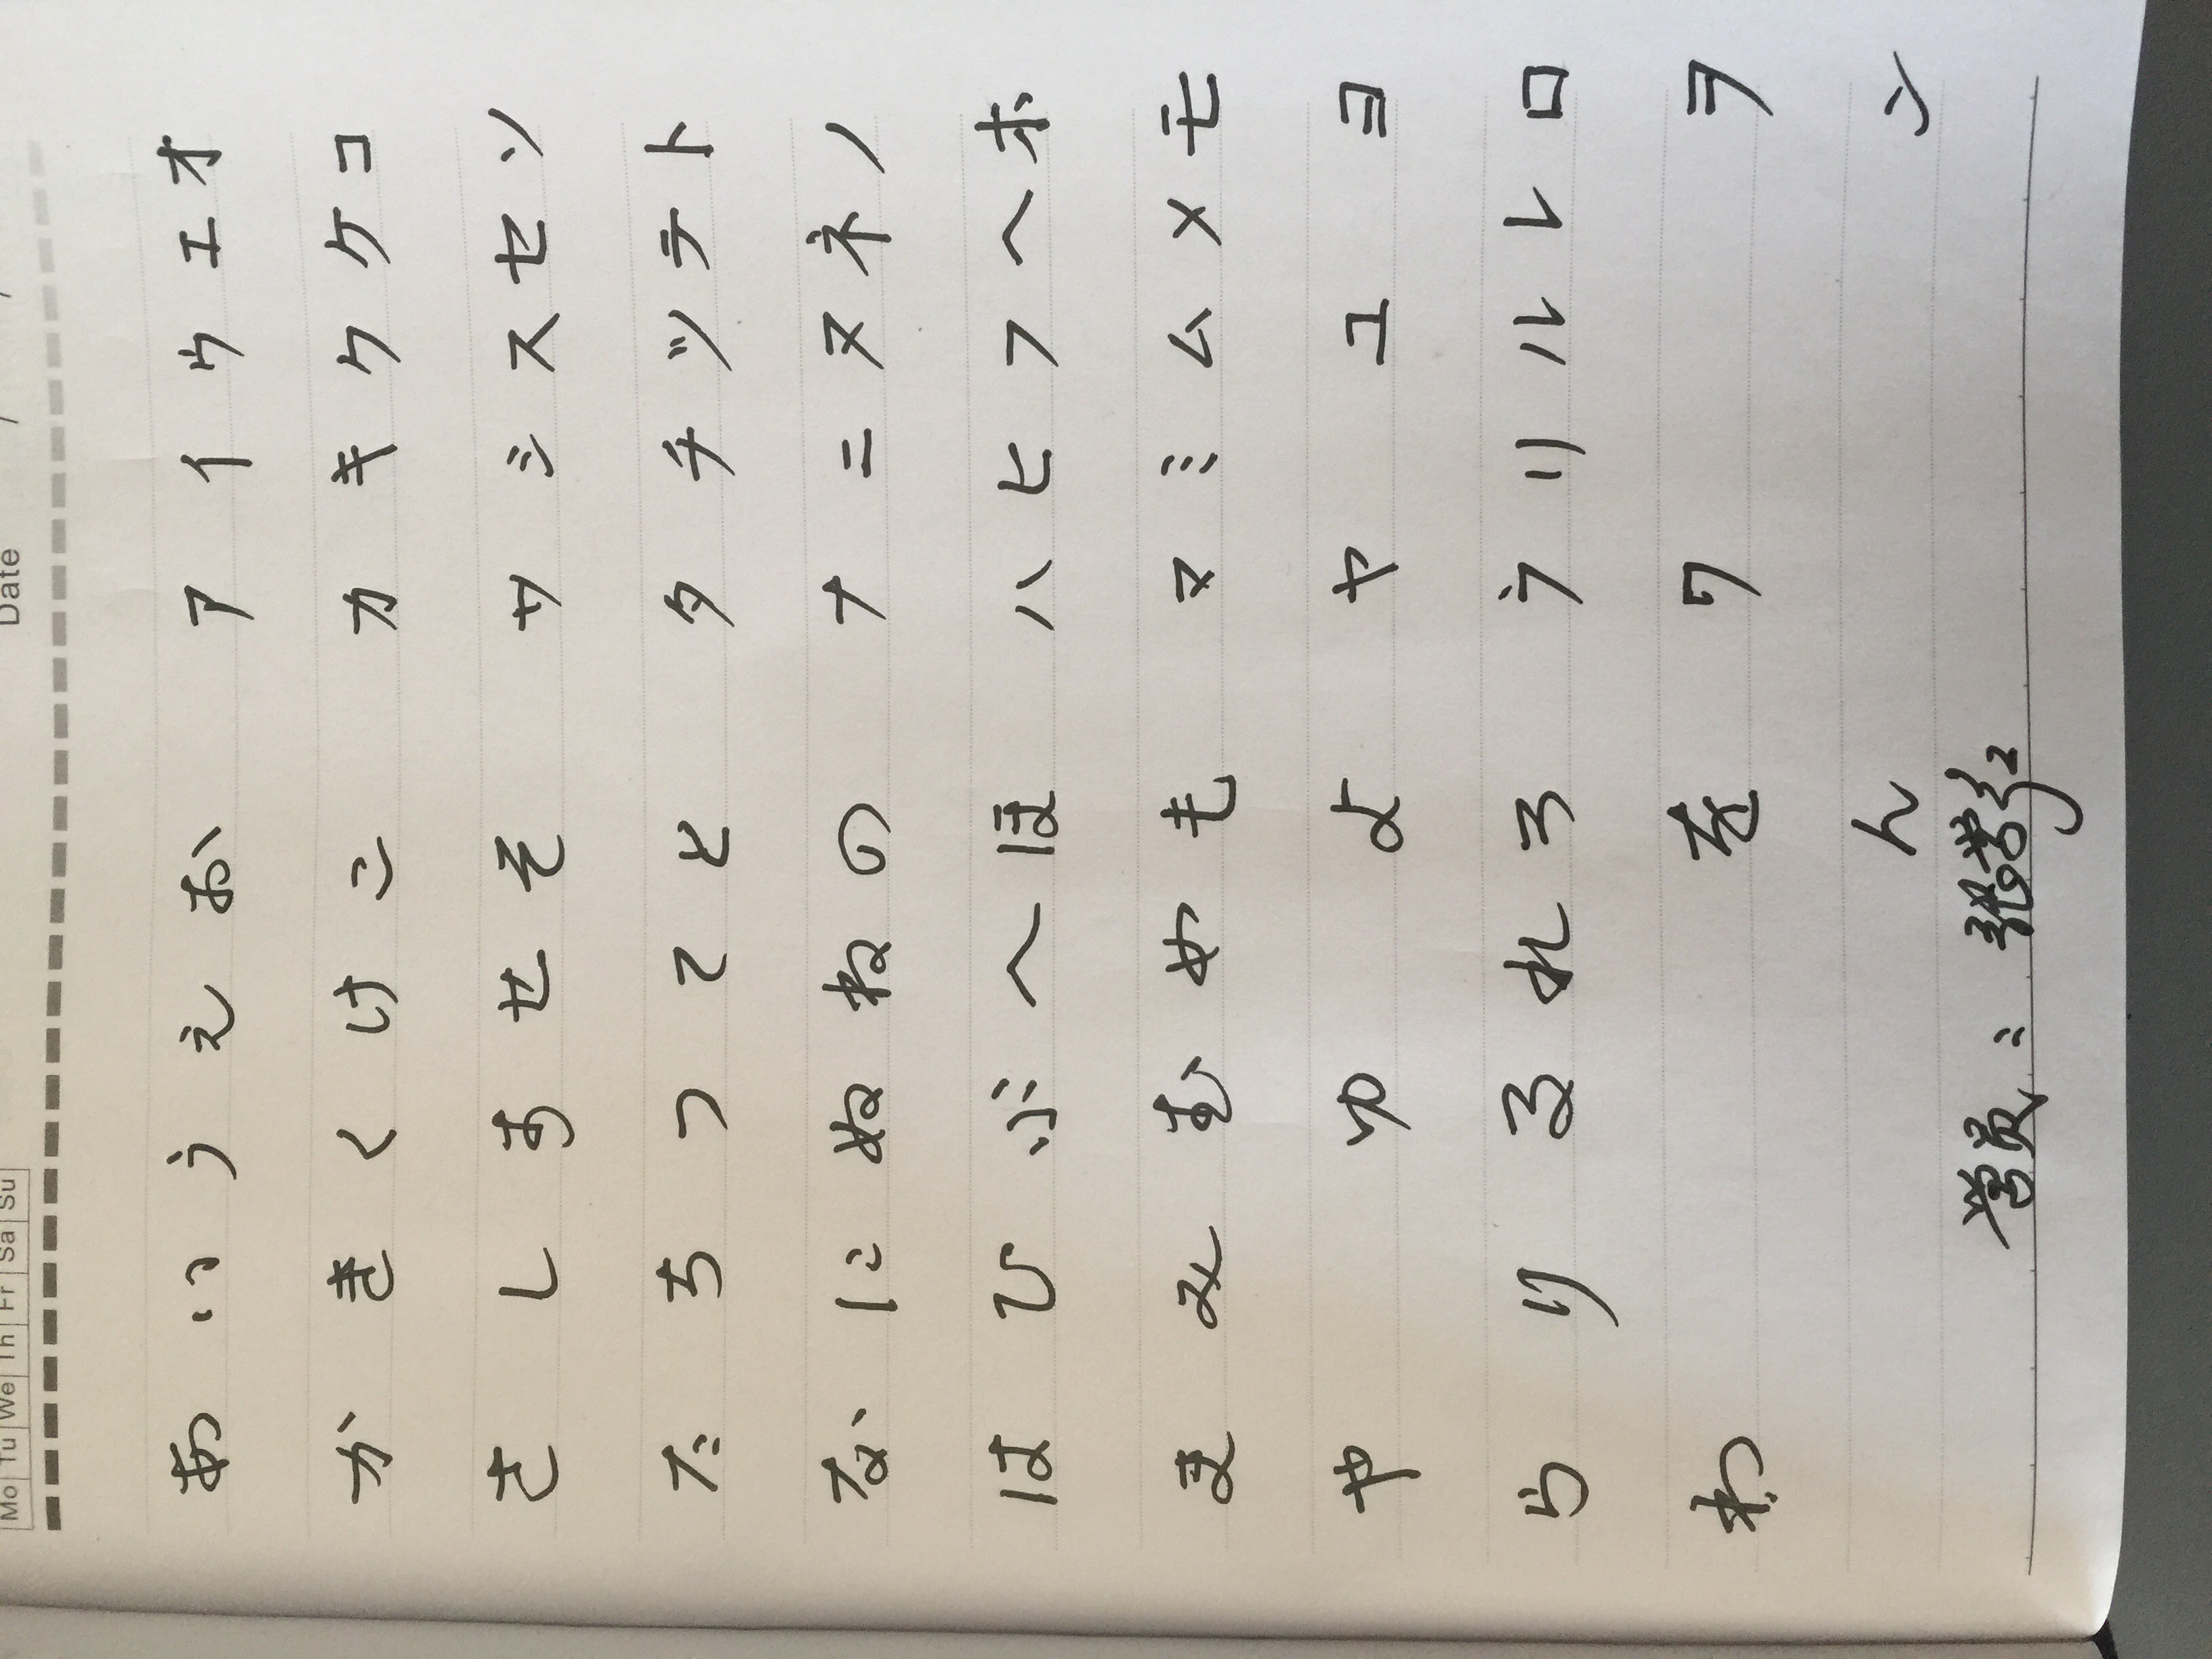 Mo Tu We Th Fr Sa Su Date / /
あ い う え お ア イ ウ エ オ
か き く け こ カ キ ク ケ コ
さ し す せ そ サ シ ス セ ソ
た ち つ て と タ チ ツ テ ト
な に ぬ ね の ナ ニ ヌ ネ ノ
は ひ ふ へ ほ ハ ヒ フ ヘ ホ
ま み む め も マ ミ ム メ モ
や ゆ よ ヤ ユ ヨ
ら り る れ ろ ラ リ ル レ ロ
わ を ワ ヲ
ん ン
学员：张学红